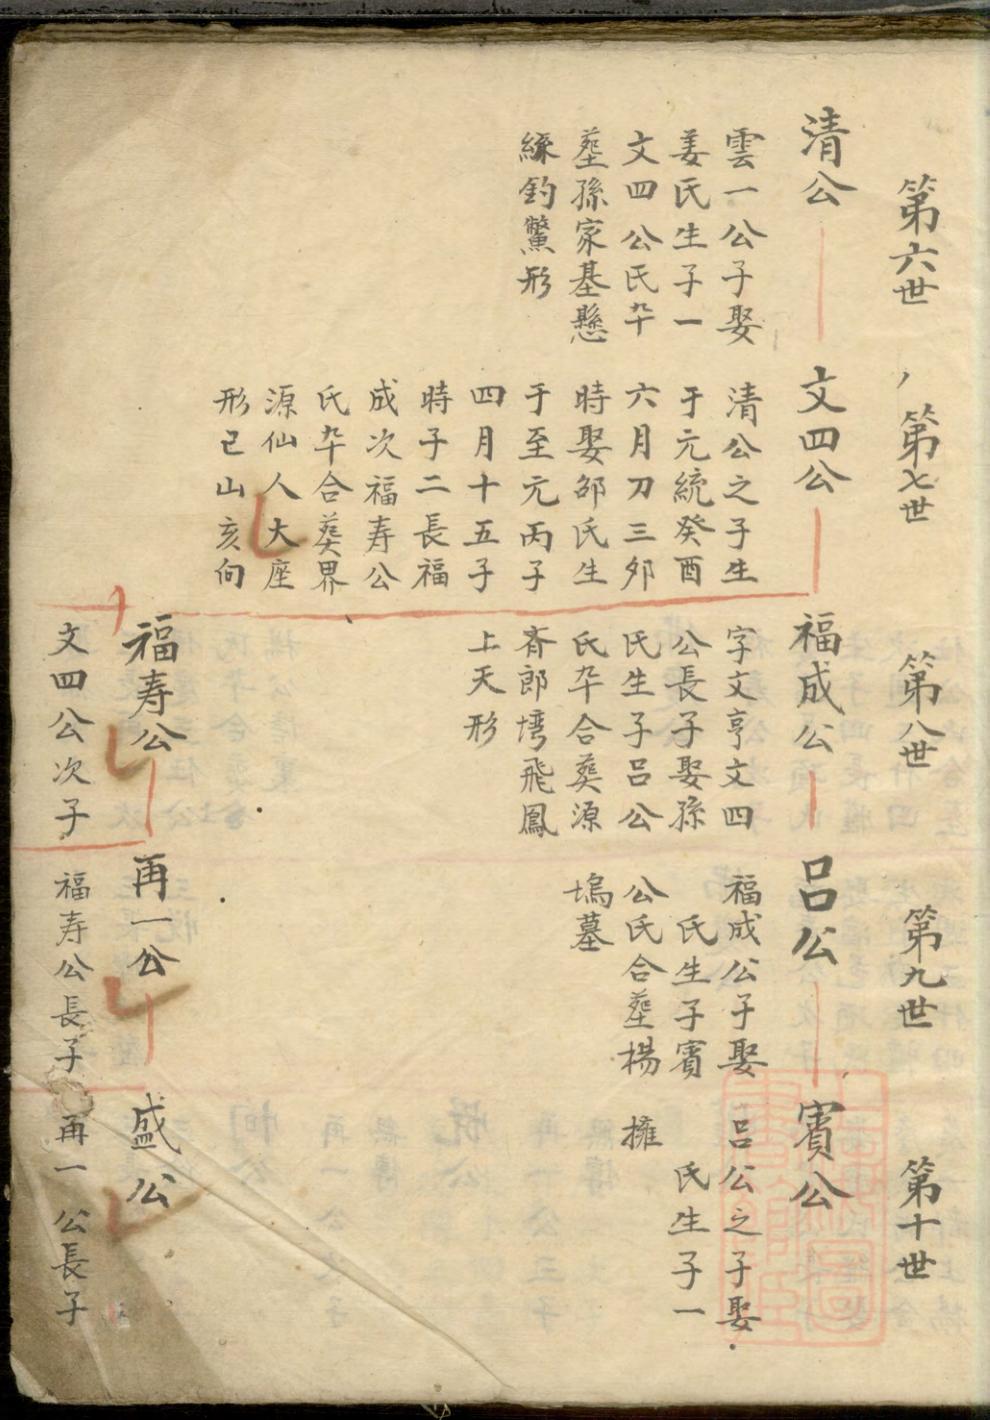 第六世
第七世
第八世
第九世
第十世
清公
雲一公子娶
姜氏生子一
文四公氏卆
塟孫家基懸
絲釣鱉形
文四公
清公之子生
于元統癸酉
六月刀三夘
時娶邵氏生
于至元丙子
四月十五子
時子二長福
成次福寿公
氏卆合葖界
源仙人大座
形已山亥向
福成公
字文亨文四
公長子娶孫
民生子呂公
氏卆合葖源
斉郎塆飛鳳
上天形
呂公
福成公子娶
氏生子賓
公氏合塟楊
塢墓
賓公
呂公之子娶
氏生子一
擁
福寿公
文四公次子
再一公
福寿公長子
盛公
再一公長子